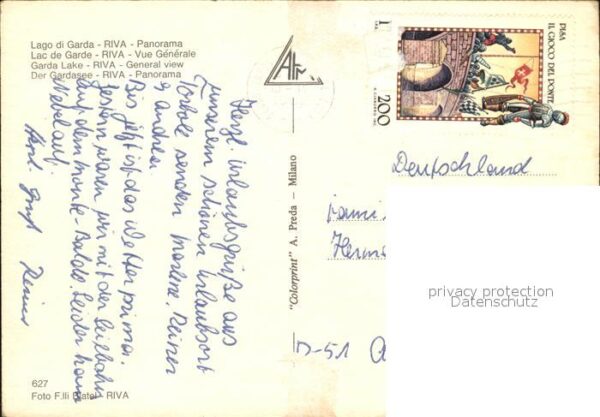 Lago di Garda - RIVA - Panorama
Lac de Garde - RIVA - Vue Générale
Garda Lake - RIVA - General view
Der Gardasee - RIVA - Panorama
Herzl. Urlaubsgrüße aus
unserem schönen Urlaubsort
Torbole senden Marlene, Reiner
u Andrea
Bis jetzt ist das Wetter prima.
Gestern waren wir mit der Seilbahn
auf dem Monte-Baldo. Leider kam
Nebel auf.
Herzl. Gruß
Reiner
627
Foto F.lli - RIVA
"Colorprint" A. Preda - Milano
PISA
IL GIOCO DEL PONTE
200
Deutschland
Fami
Herm
D-51
privacy protection
Datenschutz